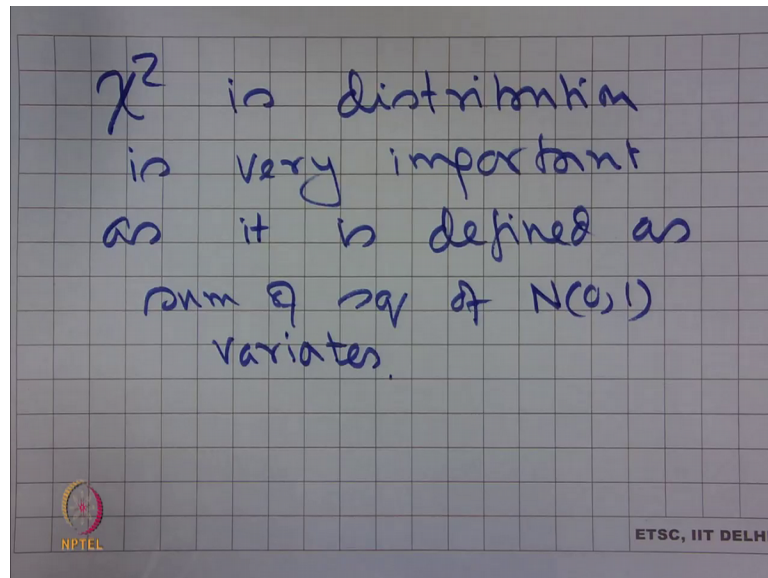 χ² is distribution
is very important
as it is defined as
sum of sq of N(0,1)
variates.
NPTEL
ETSC, IIT DELH